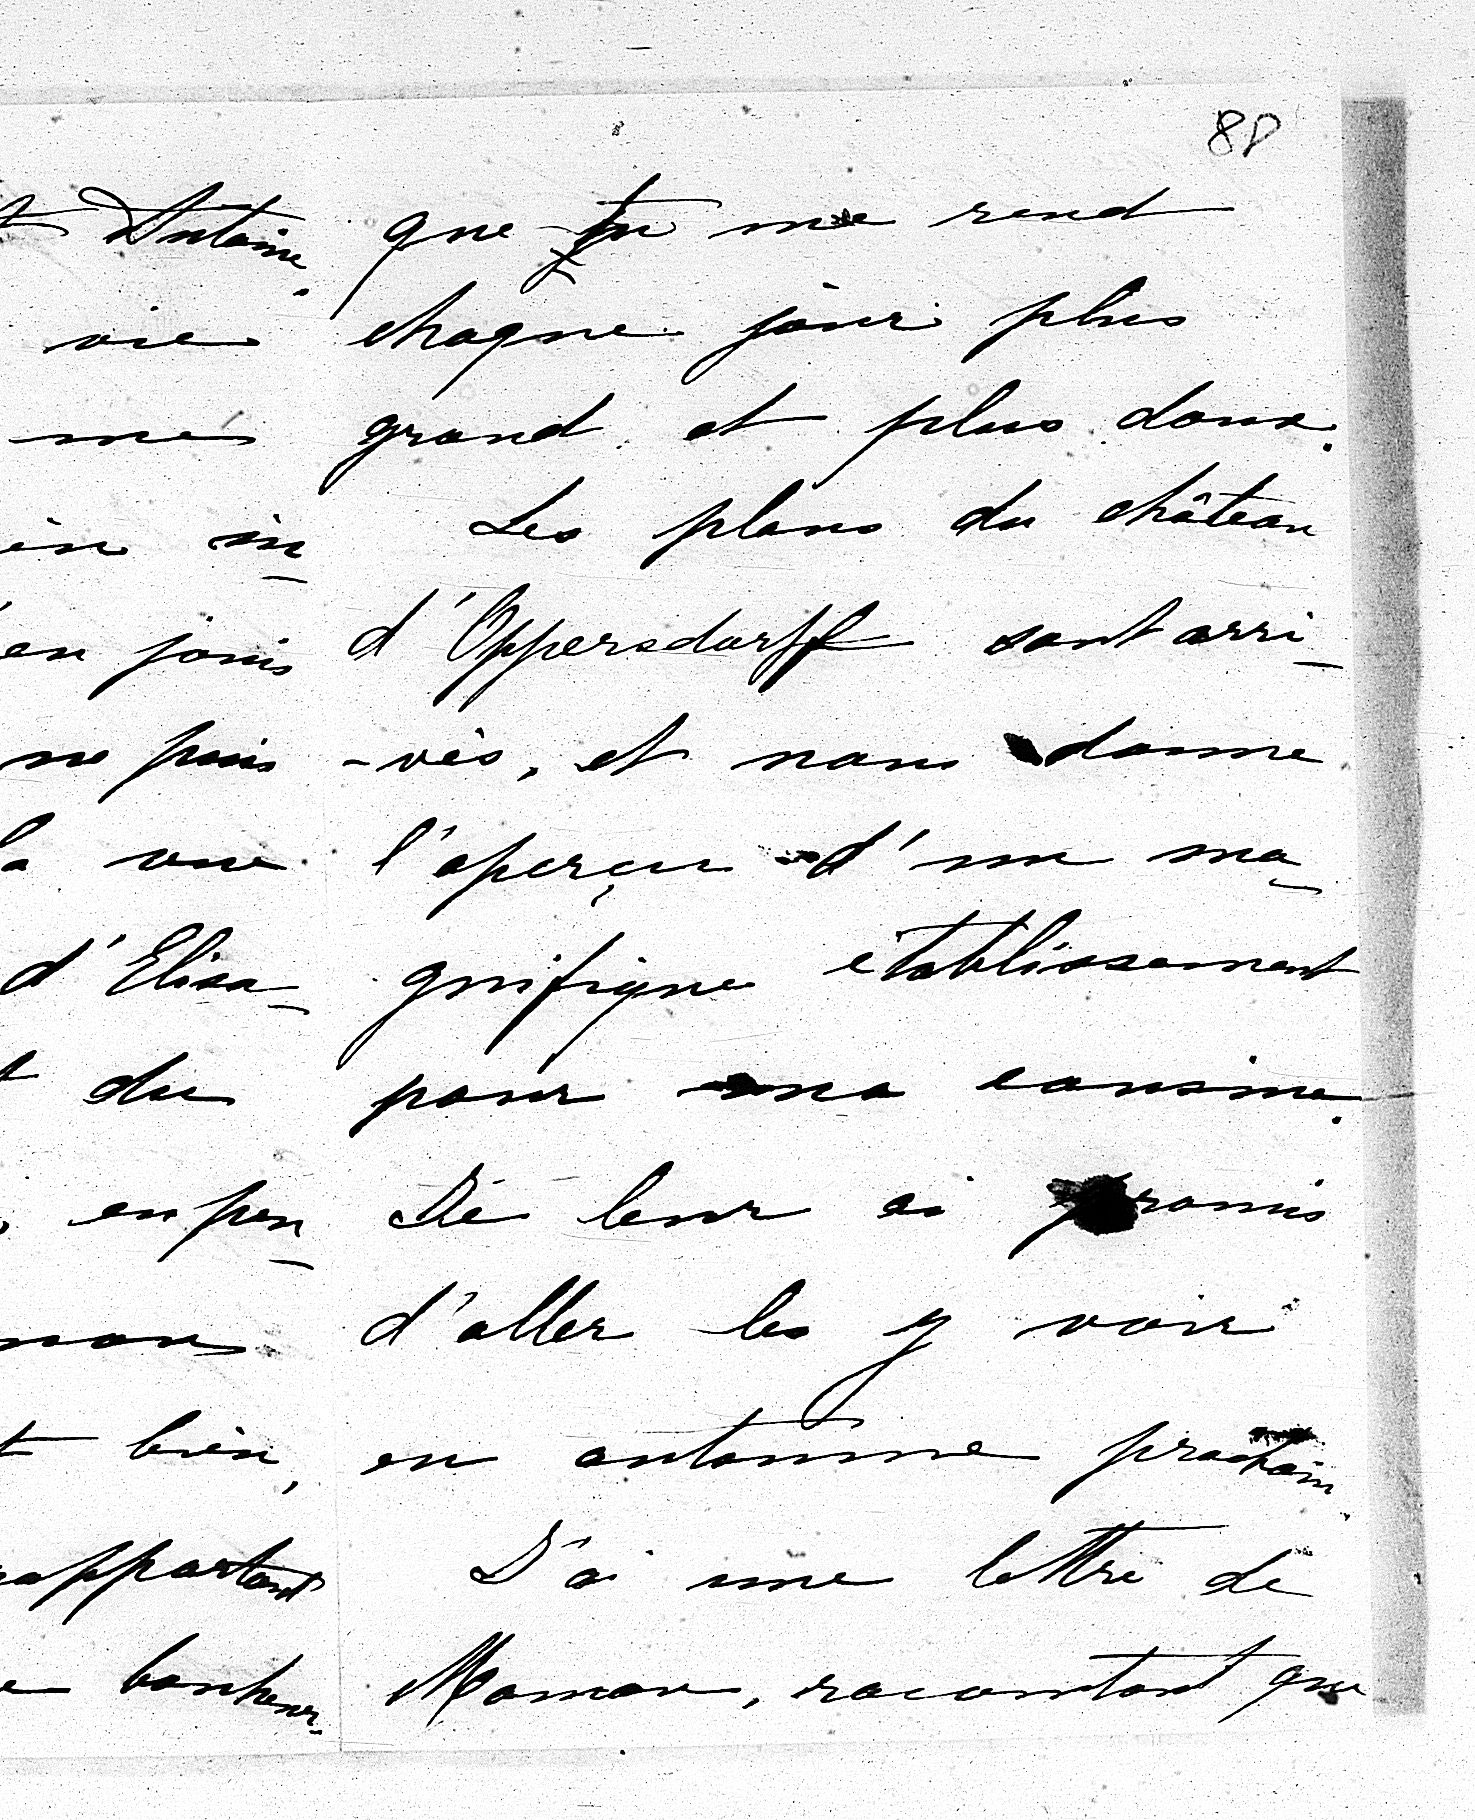 88
t Antoine.
vie
mes
ien in-
'en jouis
ne puis
la vue
d'Elisa-
t du
, en pen-
mon
t bien,
rapportant
e bonheur
que tu me rend
chaque jour plus
grand et plus doux.
Les plans du château
d'Oppersdorff sont arri-
-vés, et nous donne
l'aperçu d'un ma-
gnifique établissement
pour ma cousine.
Je leur ai promis
d'aller les y voir
en automne prochain.
J'ai une lettre de
Maman, racontant que